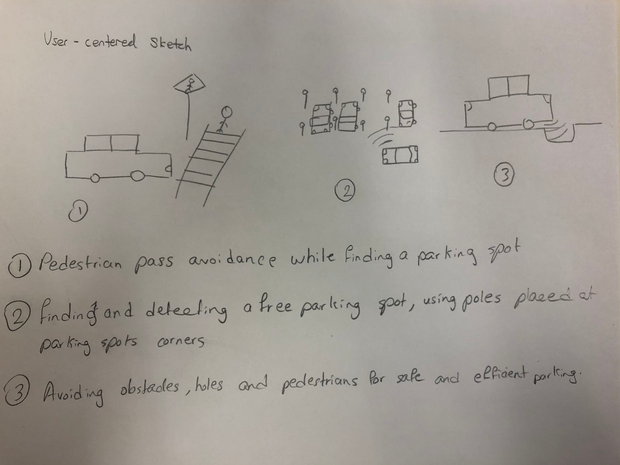 User - centered Sketch
1
2
3
1 Pedestrian pass avoidance while finding a parking spot
2 finding and detecting a free parking spot, using poles placed at
parking spots corners
3 Avoiding obstacles, holes and pedestrians for safe and efficient parking.